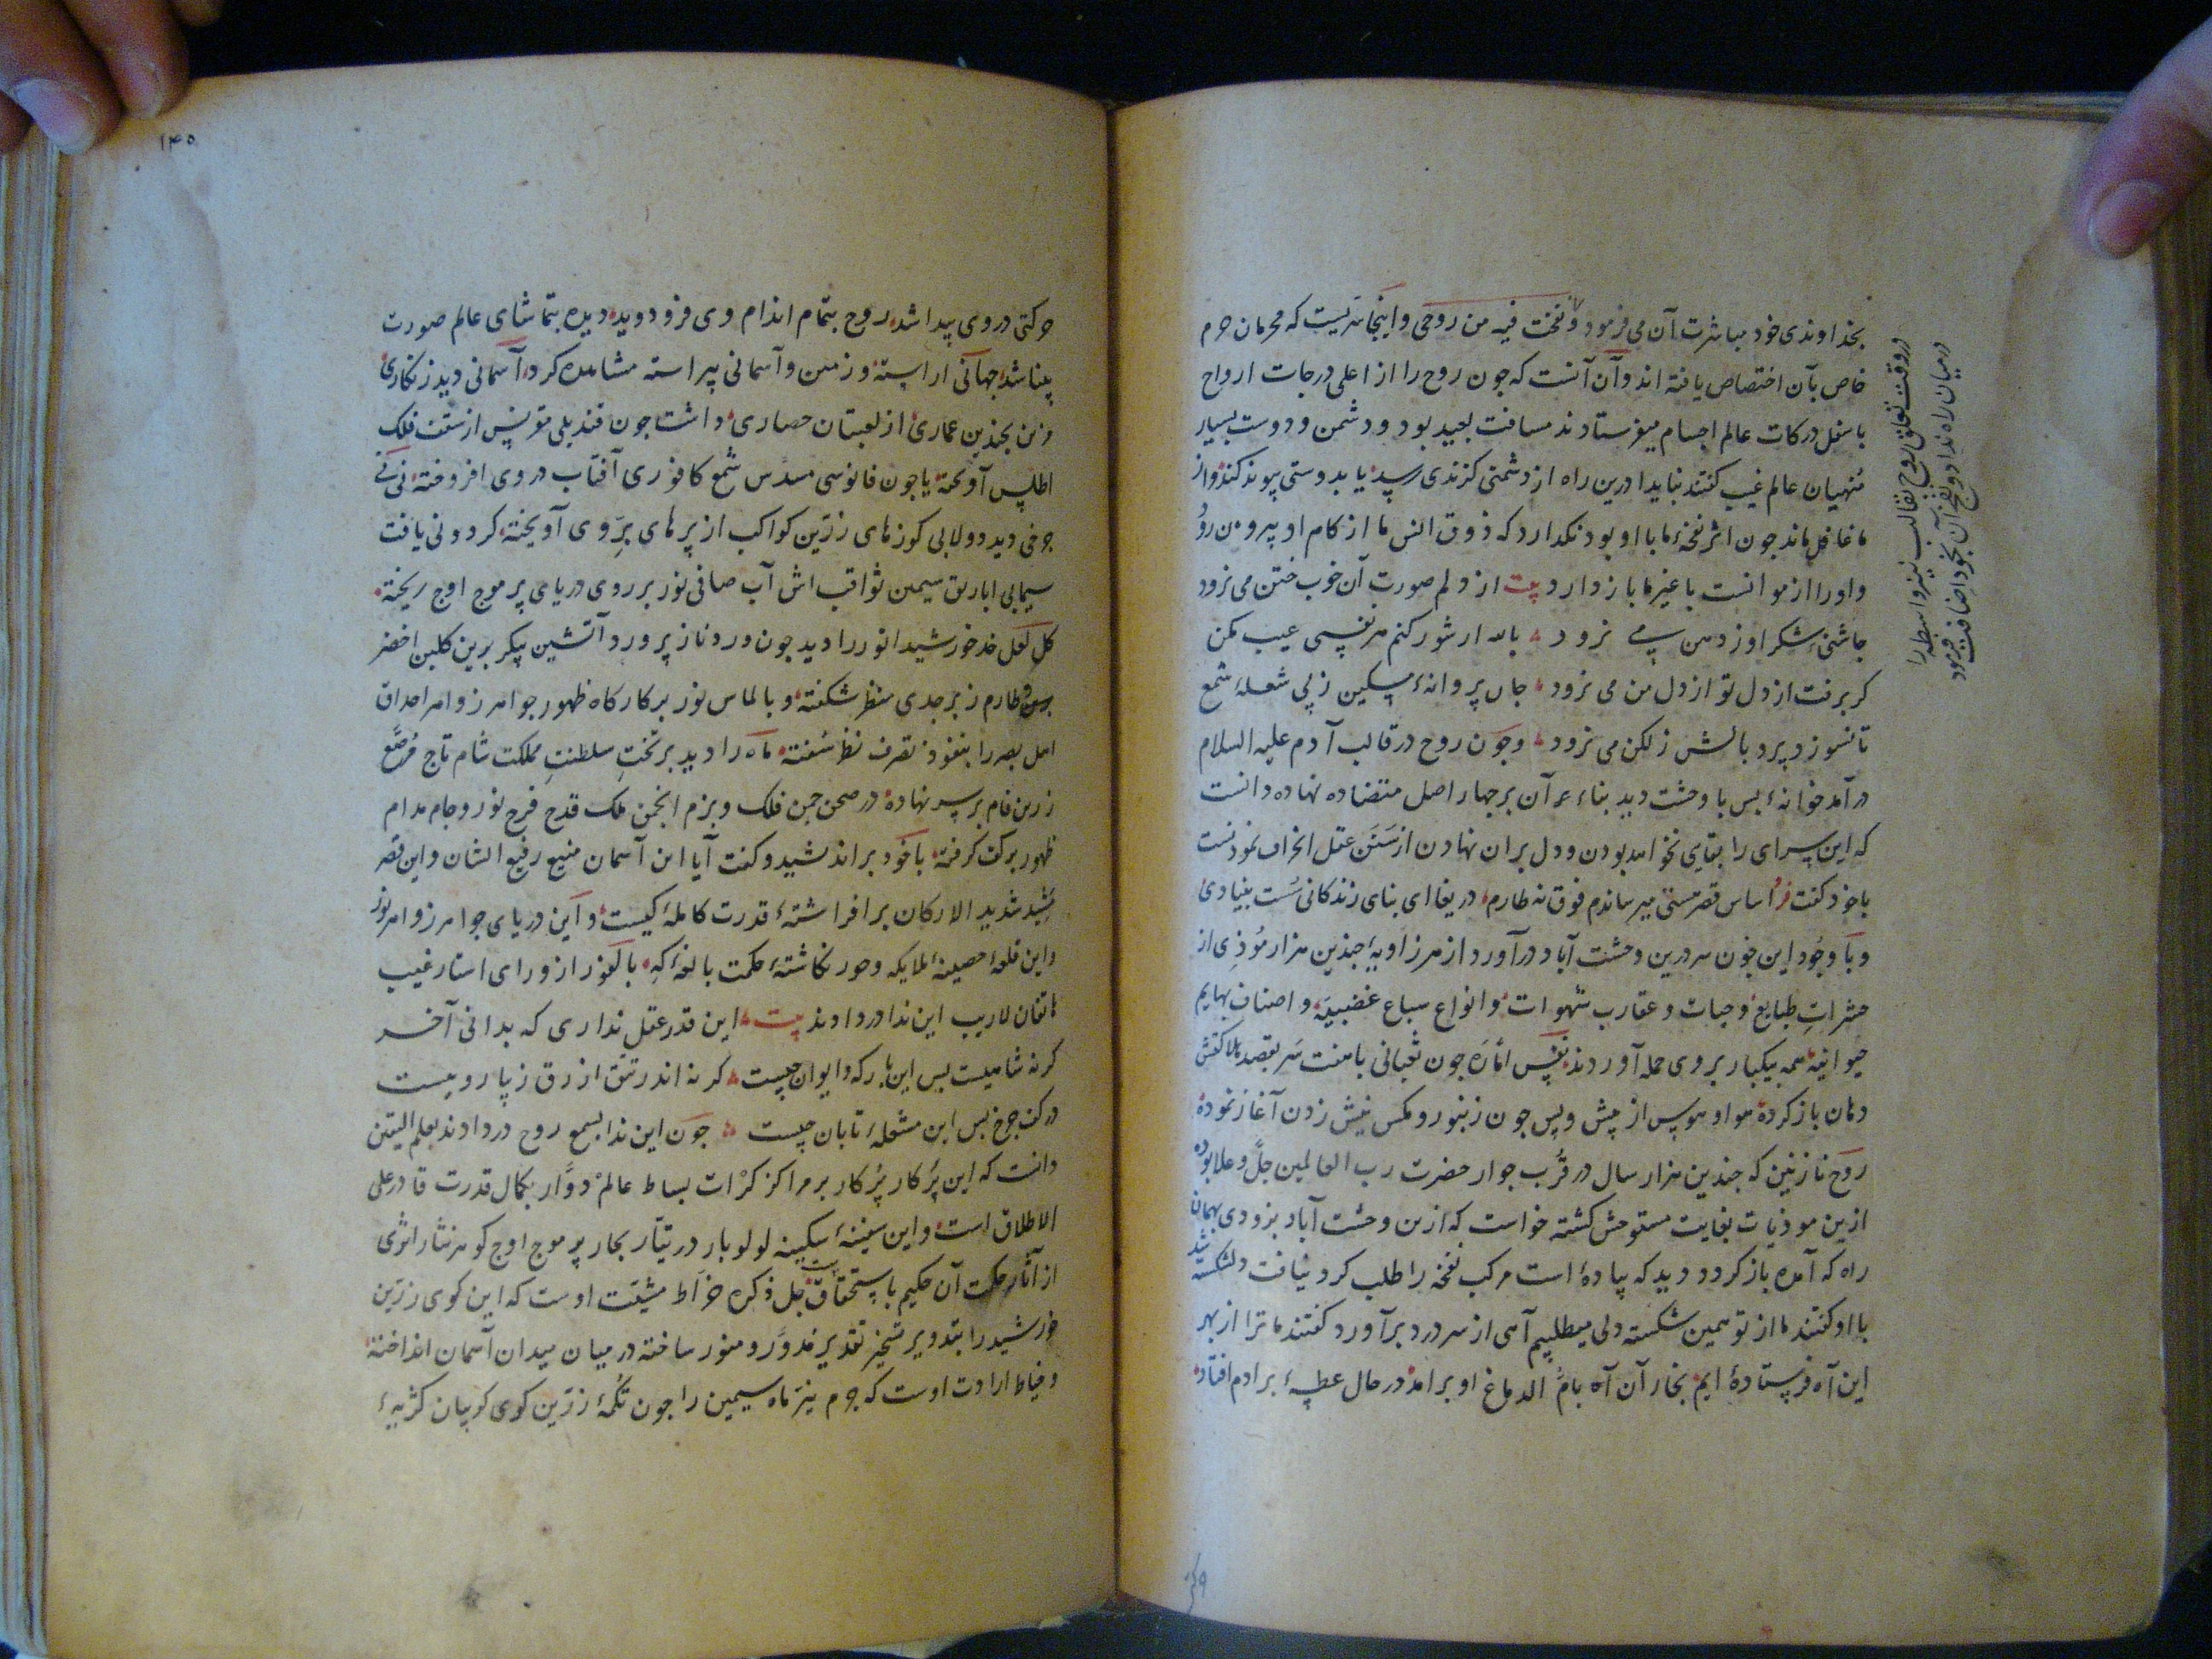 بخداوندی خود مباشرت آن می فرمود و نفخت فیه من روحی و اینجا سریست که محرمان حرم
خاص بآن اختصاص یافته اند و آن آنست که جون روح را از اعلی درجات ارواح
باسفل درکات عالم اجسام میفرستادند مسافت بعید بود و دشمن و دوست بسیار
منهیان عالم غیب کفتند نباید ا درین راه از دشمنی کزندی رسد یا بدوستی پیوند کند و از
ما غافل ماند جون اثر نفخهٔ ما با او بود نکدارد که ذوق انس ما از کام او بیرون رود
و او را از موانست با غیر ما باز دارد بیت از دلم صورت آن خوب ختن می نرود
جاشنی شکر او ز دهن می نرود بالله ار شور کنم هر نفسی عیب مکن
کر برفت از دل تو از دل من می نرود جان پروانهٔ مسکین ز پی شعلهٔ شمع
تا نسوزد پر و بالش ز لکن می نرود و جون روح در قالب آدم علیه السلام
درآمد خوانهٔ بس با وحشت دید بناء آن بر جهار اصل متضاده نهاده دانست
که این سرای را بقایی نخواهد بودن و دل بران نهادن از سنن عقل انحراف نمودنست
با خود کفت اساس قصر مستی میرساندم فوق نه طارم دریغا ای بنای زندکانی سست بنیادی
و با وجود این جون سر درین وحشت آباد درآورد از هر زاویهٔ جندین هزار موذی از
حشرات طبایع و حیات و عقارب شهوات و انواع سباع غضبیه و اصناف بهایم
حیوانیه همه بیکبار بروی حمله آوردند نفس اماره جون ثعبانی با هفت سر بقصد هلاکتش
دهان باز کرده هوا و هوس از پیش و پس جون زنبور و مکس نیش زدن آغاز نموده
روح نازنین که جندین هزار سال در قرب جوار حضرت رب العالمین جل و علا بوده
ازین موذیات بغایت مستوحش کشته خواست که ازین وحشت آباد بزودی بهمان
راه که آمده باز کردد دید که پیاده است مرکب نفخه را طلب کرد نیافت دلشکسته شد
با او کفتند ما از تو همین شکسته دلی میطلبیم آهی از سر درد برآورد کفتند ما ترا از بهر
این آه فرستاده ایم بخار آن آه بام الدماغ او برامد در حال عطسهٔ بر ادم افتاد
در وقت تعلق روح بقالب نیز واسطه را
در میان راه نداد و نفخ آن بخود اضافت فرمود
۱۴۵
حرکتی در وی پیدا شد روح بتمام اندام وی فرو دوید دیده بتماشای عالم صورت
بینا شد جهانی اراسته و زمین و آسمانی پیراسته مشاهده کرد آسمانی دید زنکاری
وزن بجندین عماری از لعبتان حصاری داشت جون قندیلی مقرنس از سقف فلک
اطلس آویخته یا جون فانوسی مسدس شمع کافوری آفتاب در وی افروخته نی نی
جرخی دید دولابی کوزهای زرین کواکب از پرهای بر وی آویخته کردونی یافت
سیمابی اباریق سیمین ثواقب اش آب صافی نور بر روی دریای پر موج اوج ریخته
کل لعل خد خورشید انور را دید جون ورد ناز پرورد آتشین پیکر برین کلبن اخضر
طارم زبرجدی منظر شکفته و بالماس نور بر کارکاه ظهور جواهر زواهر احداق
اهل بصر را بنفوذ تصرف نظر سفته ماه را دید بر تخت سلطنت مملکت شام تاج مرصع
زرین فام بر سر نهاده در صحن جمن فلک و بزم انجمن ملک قدح فرح نور و جام مدام
ظهور بر کف کرفته با خود براندیشید و کفت آیا این آسمان منیع رفیع الشان و این قصر
مشید شدید الارکان بر افراشتهٔ قدرت کاملهٔ کیست و این دریای جواهر زواهر نور
و این قلعهٔ حصینهٔ ملایکه و حور نکاشتهٔ حکمت بالغهٔ که بالفور از ورای استار غیب
هاتفان لاریب این ندا در دادند بیت این قدر عقل نداری که بدانی آخر
کر نه شاهیست بس این بارکه و ایوان جیست کر نه اندر تتق ازرق زیبا رویست
در کف جرخ بس این مشعلهٔ تابان جیست جون این ندا بسمع روح در دادند بعلم الیقین
دانست که این پرکار پرکار بر مراکز کرات بساط عالم دوار بکمال قدرت قادر علی
الاطلاق است و این سفینهٔ سکینه لولوبار در تیار بحار پر موج اوج کوهر نثار اثری
از آثار حکمت آن حکیم باستحقاق جل ذکره خراط مشیتت اوست که این کوی زرین
خورشید را بتدویر تسخیر تقدیر مدور و منور ساخته در میان میدان آسمان انداخته
و خیاط ارادت اوست که جرم نیر ماه سیمین را جون تکمهٔ زرین کوی کریبان